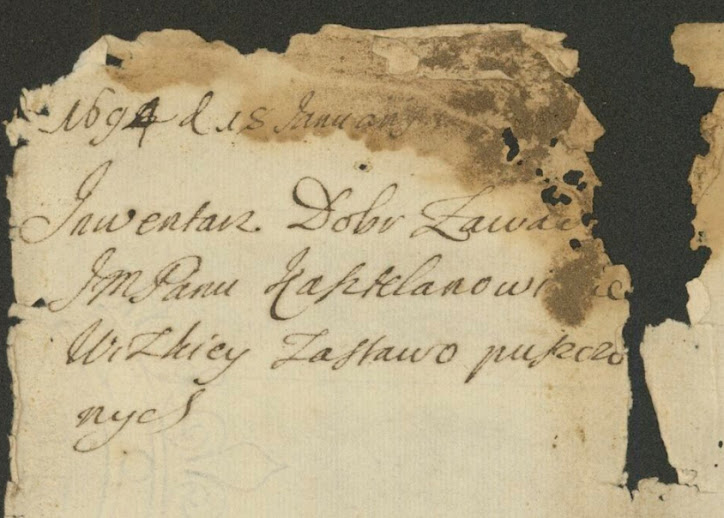 1694 d 18 Januarij
Inwentarz Dobr Zawad
JM Panu Kasztelanowi
Wizkiey Zastawo puszczo
nych